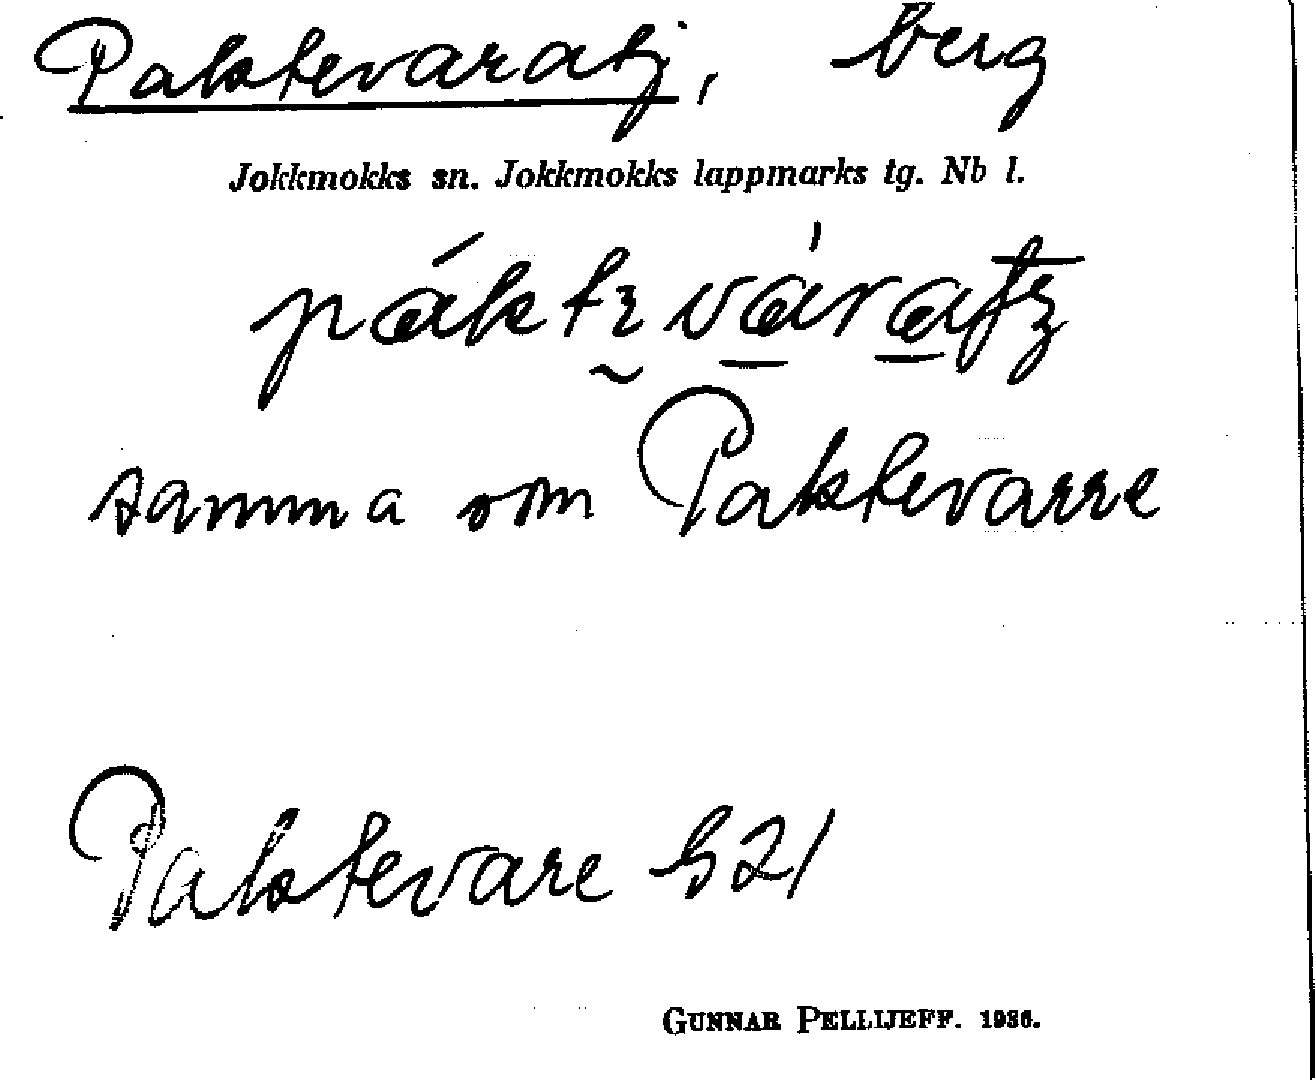 Paktevaratj, berg
Jokkmokks sn. Jokkmokks lappmarks tg. Nb l.
samma som Paktevarre
Paktevare 521
GUNNAR PELLIJEFF. 1936.